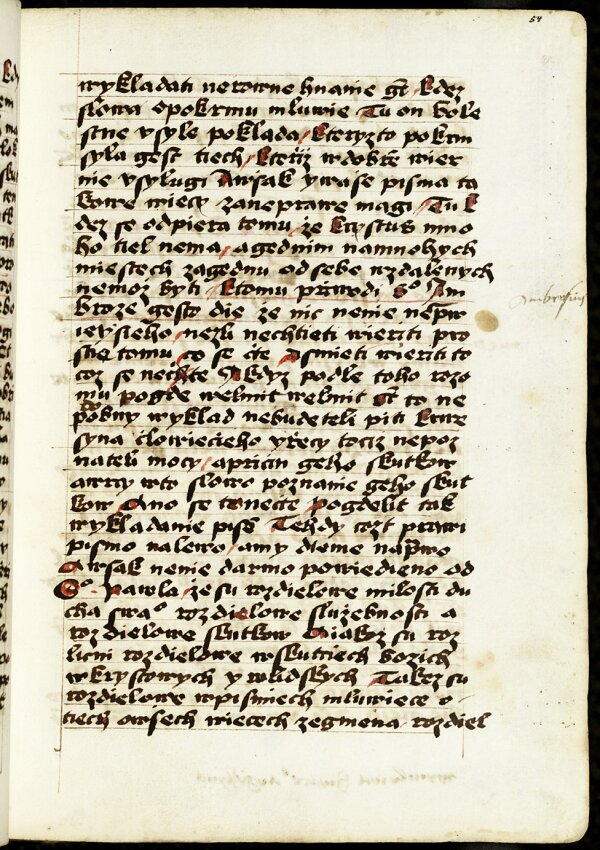 54
wykladati nerowne hnanie gt Kdez
slowa opokrmu mluwie Tu on bole
stne vsyle poklada, kteryzto pokrm
syla gest tiech, ktoriz wdobre wier
nie vsylugi Awsak ywase pisma ta
kowe wiecy zanepawe magi, Tu k
dez se odpiera tomu, ze krystus mno
ho tiel nema, agednim namnohych
miestech zagednu odsebe wzdalenych
nemoz byti ktomu priwodi So Am
broze gesto die ze nic nenie nepra
ieysieho, nezli nechtieti wieriti pro
stie tomu, co se cte Asmieti wieriti to
coz se nechte A kdyz podle toho rozo
mu pogde welmit welmit gt to ne
podobny wyklad nebudeteli piti krwe
syna clowiecieho yrecy tociz nepoz
nateli mocy, apricin geho skutkow
awtey wto slowo poznanie geho skut
kow Ano se tenecte pogdelit tak
wykladanie pise Tehdy cozt prawi
pismo nalewo, amy dieme naprawo
Awsak nenie darmo powiedieno od
So Pawla, zesu rozdielowe milosti du
cha swao rozdielowe sluzebnosti a
rozdielowe skutkow Aiakyz su roz
licni rozdielowe wskutciech bozich
wkrystowych y wlidskych Takez su
rozdielowe wpismiech mluwiece o
tiech owsech wiecech zegmena rozdiel
Ambrosius